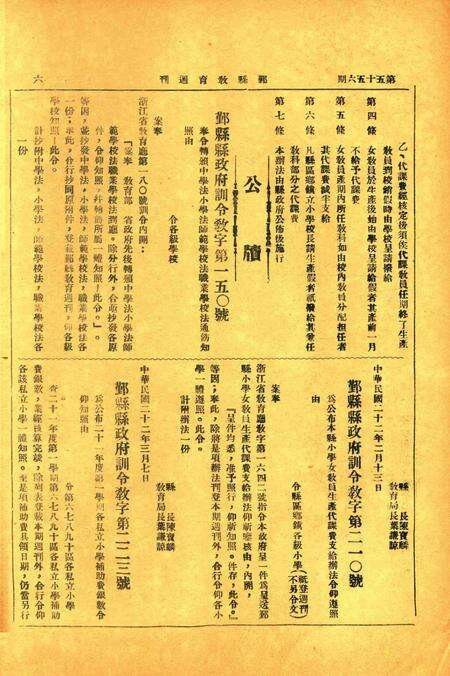 第五十五六期
鄞縣教育週刊
六
乙、代課費經核定後須俟代課教員任期終了生產
教員調稜銷假時由學校呈請撥給
第四條 女教員於生產後始由學校呈請給假者其產前一月
不給予代課費
第五條 女教員產期內所任教科如由校內教員分配擔任者
其代課費減半支給
第六條 凡縣區鄉鎮立小學校長請生產假者祇撥給其兼任
教科部分之代課費
第七條 本辦法由縣政府公佈後施行
公牘
鄞縣縣政府訓令教字第一五〇號
令各級學校
奉令轉頒中學法小學法師範學校法職業學校法通飭知
照由
案奉
浙江省教育廳第一八〇號訓令內開：
『案奉 教育部 省政府先後轉頒中學法小學法師
範學校法職業學校法到廳。除分行外，合亟抄發各原
件，令仰知照，幷轉飭所屬一體知照！此令。』。
等因，並抄發中學法，小學法，師範學校法，職業學校法各
一份；奉此，合行抄同原附件，登載鄞縣教育週刊，仰各級
學校知照。此令。
計抄附中學法，小學法，師範學校法，職業學校法各
一份
中華民國二十二年二月十三日
縣長陳寶麟
教育局長葉謙諒
鄞縣縣政府訓令教字第二一〇號
令縣區鄉鎮各級小學（祇登週刊不另令文）
爲公布本縣小學女教員生產代課費支給辦法令仰遵照
由
案奉
浙江省教育廳教字第一六四二號指令本政府呈一件爲呈送鄞
縣小學女教員生產代課費支給辦法仰祈鑒核由，內開，
『呈件均悉，准予照行，仰祈知照。件存，此令。』
等因；奉此，除將是項辦法刊登本期週刊外，合行令仰各小
學一體遵照。此令。
計附辦法一份
中華民國二十二年三月七日
縣長陳寶麟
教育局長葉謙諒
鄞縣縣政府訓令教字第二二三號
令第六七八九十區各私立小學
爲公布二十一年度第一學期各私立小學補助費銀數令
仰知照由
查二十一年度第一學期第六七八九十區各私立小學補助
費銀數，業經核算完竣，除列表登載本期週刊外，合行令仰
各該私立小學一體知照。至是項補助費具領日期，仍當另行